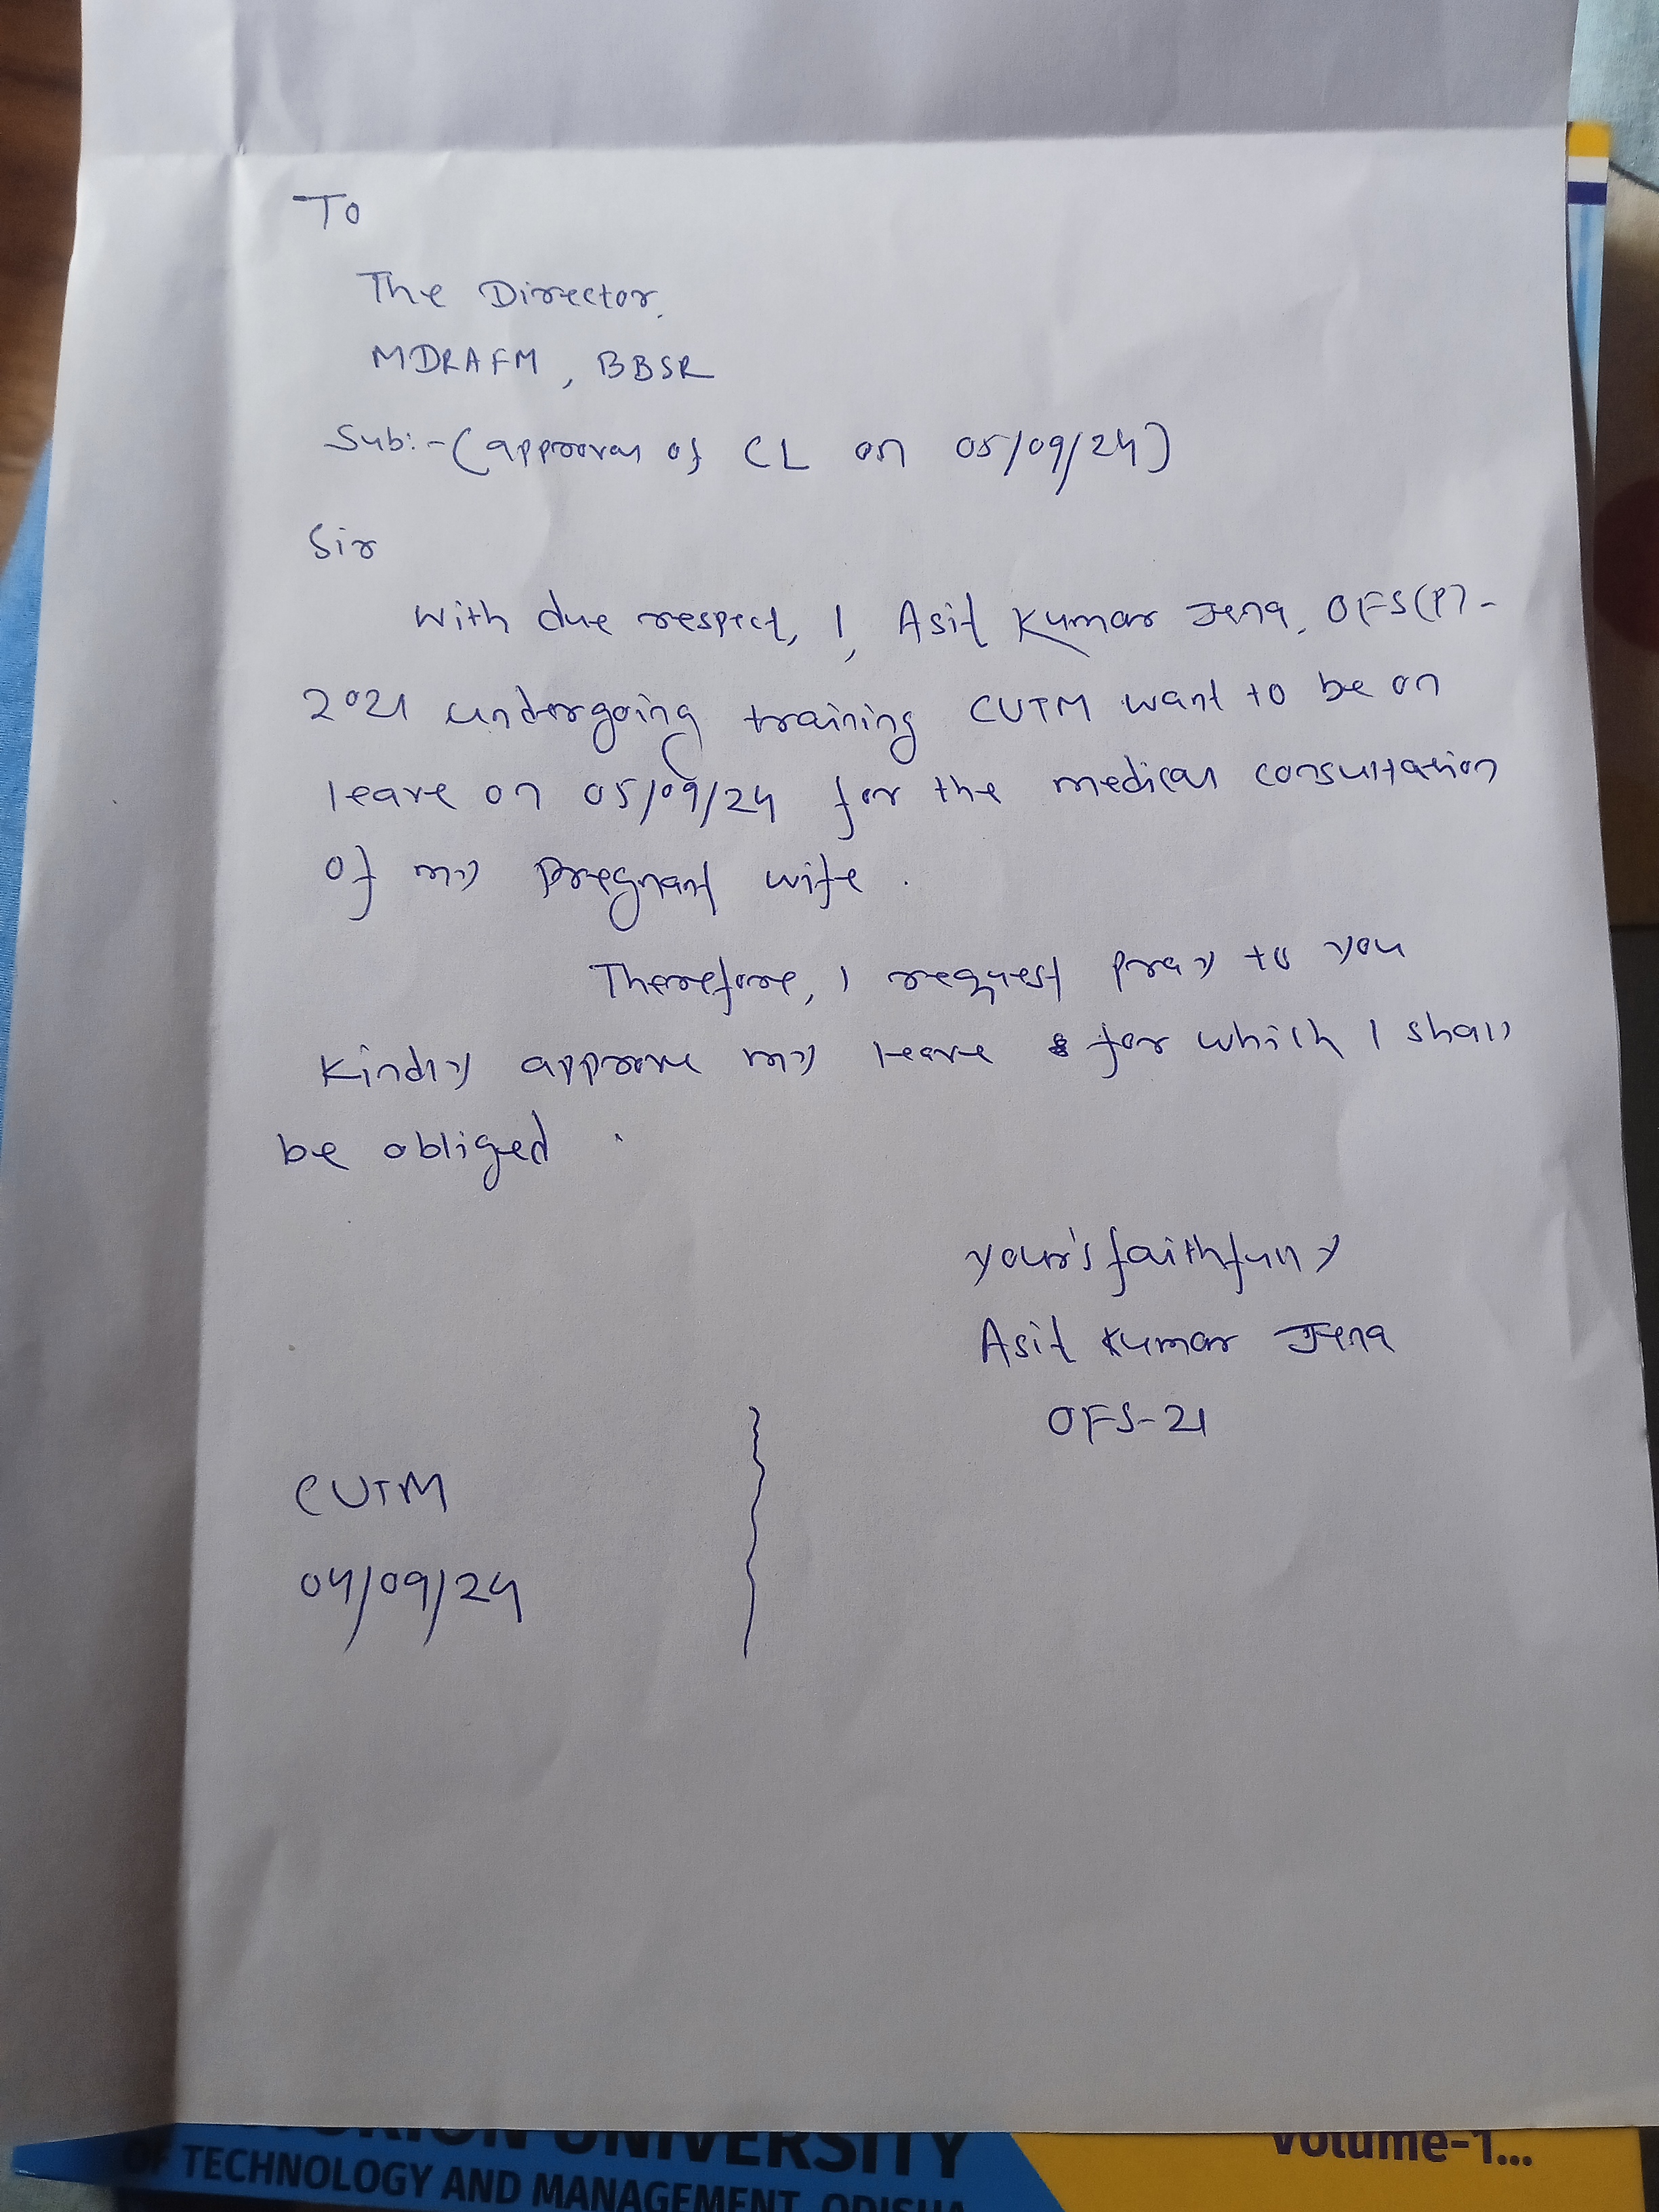 To
The Director,
MDRAFM, BBSR
Sub:-(approval of CL on 05/09/24)
Sir
With due respect, I, Asit Kumar Jena, OFS(P)-
2021 undergoing training CUTM want to be on
leave on 05/09/24 for the medical consultation
of my pregnant wife.
Therefore, I request pray to you
kindly approve my leave for which I shall
be obliged.
your's faithfully
Asit Kumar Jena
OFS-21
CUTM
04/09/24
UNIVERSITY
OF TECHNOLOGY AND MANAGEMENT, ODISHA
Volume-1...